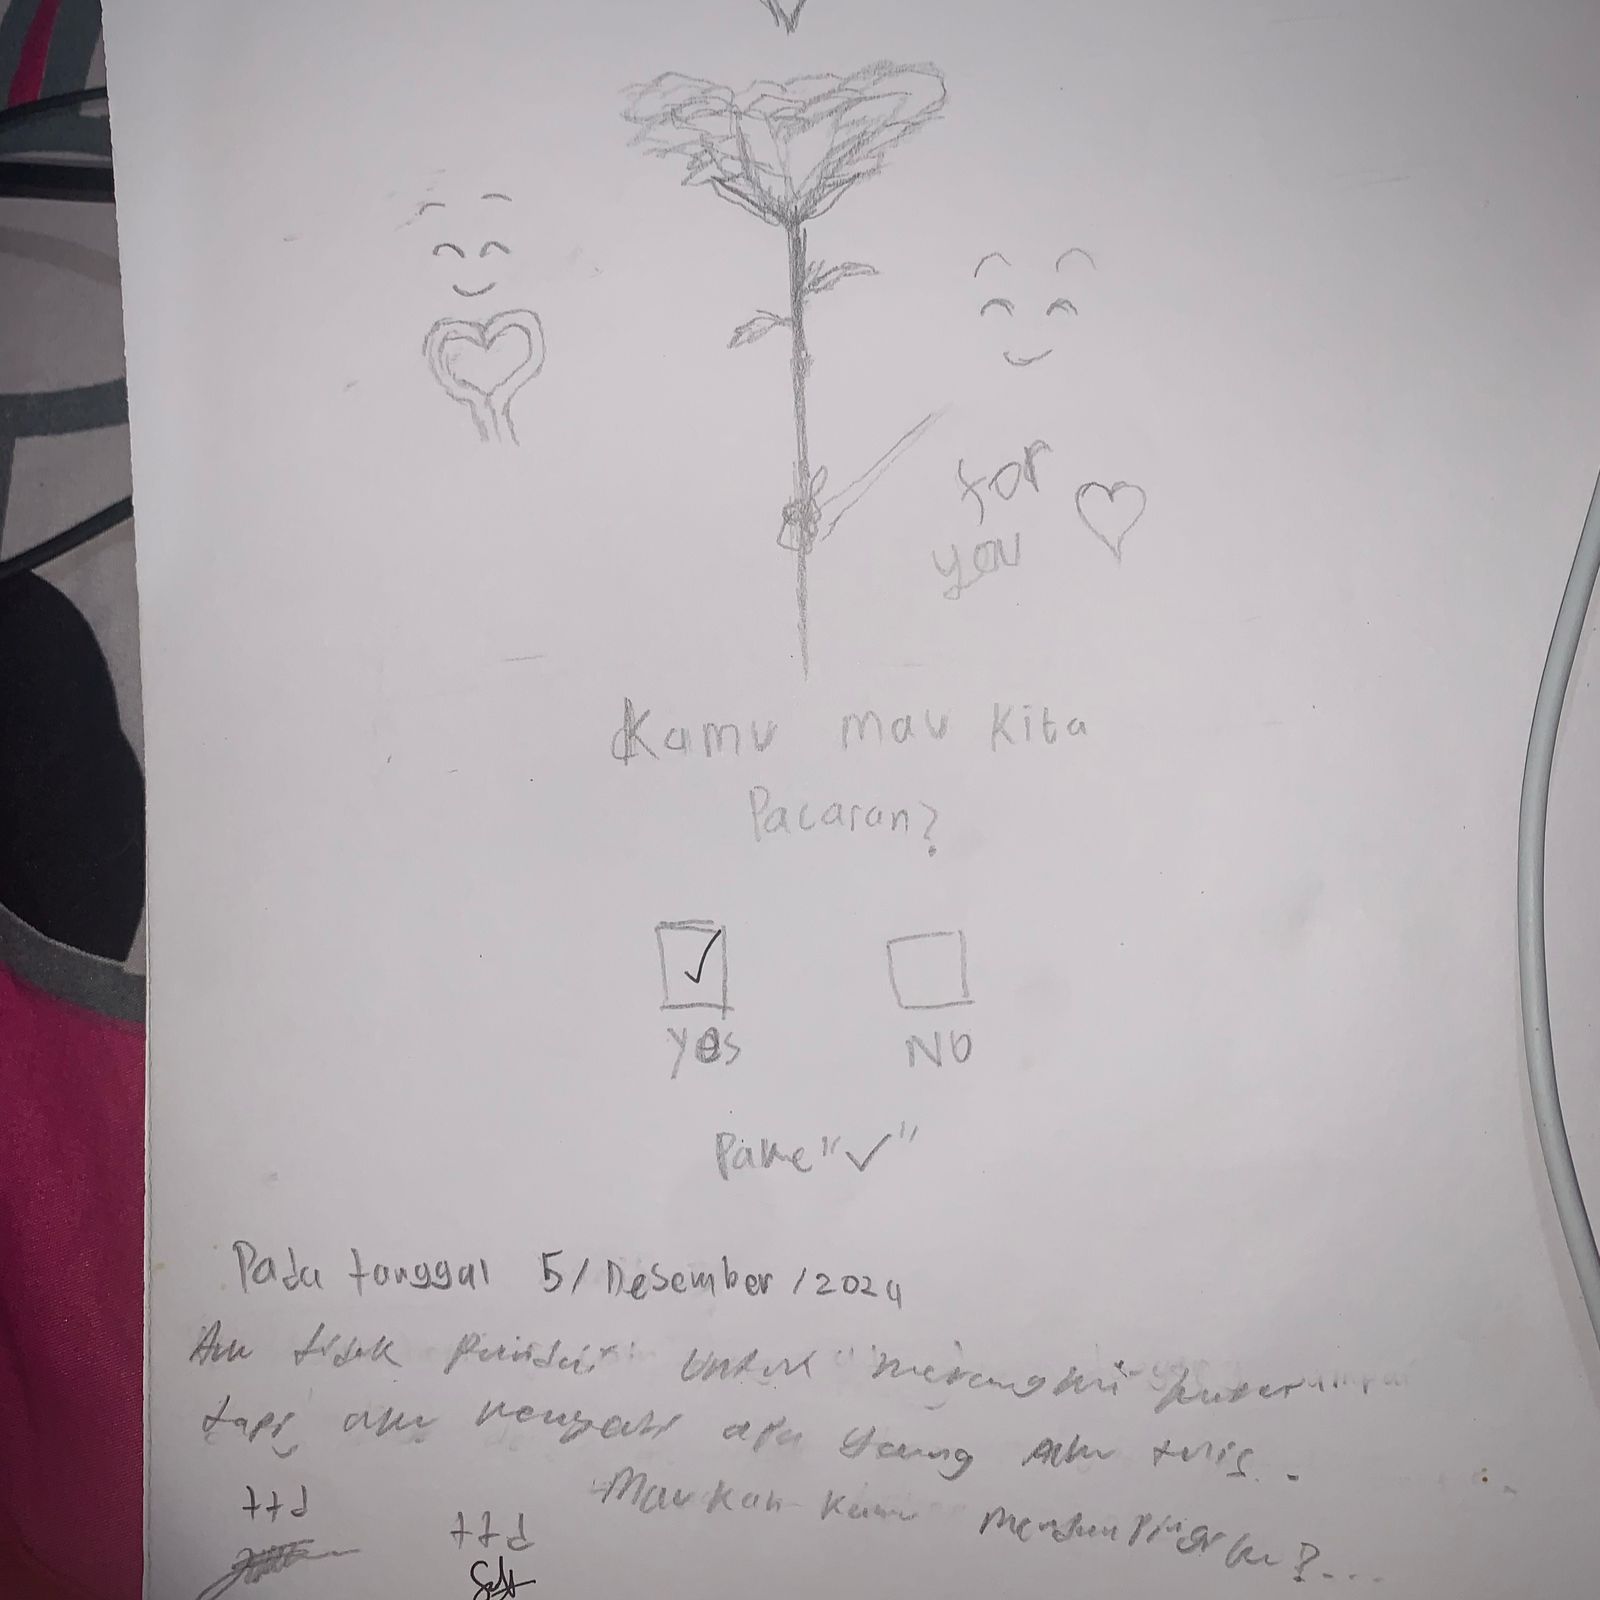 for
you
Kamu mau kita
Pacaran?
yes NO
Pake "✓"
Pada tanggal 5/Desember/2024
Aku tidak Pandai untuk merangkai
tapi aku apa yang aku tulis..
Maukah kamu mendampingi ku?...
ttd ttd